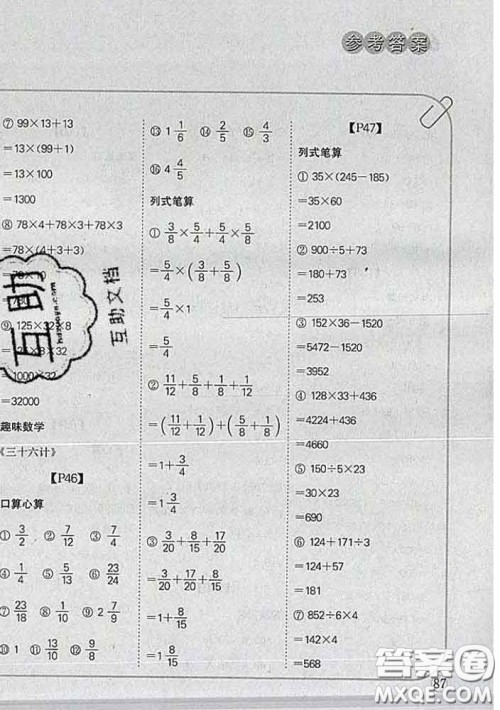 参考答案
⑦ 99×13+13
=13×(99+1)
=13×100
=1300
⑧ 78×4+78×3+78×3
=78×(4+3+3)
⑨ 125×32×8
=1000×32
=32000
趣味数学
《三十六计》
【P46】
口算心算
① 3/2 ② 7/12 ③ 7/4
④ 1/4 ⑤ 5/13 ⑥ 23/24
⑦ 23/18 ⑧ 1/10 ⑨ 2 7/9
⑩ 1 ⑪ 13/10 ⑫ 9/8
⑬ 1 1/6 ⑭ 2/5 ⑮ 4/3
⑯ 4 1/2
列式笔算
① 3/8×5/4+5/4×5/8
=5/4×(3/8+5/8)
=5/4×1
=5/4
② 11/12+5/8+1/12+1/8
=(11/12+1/12)+(5/8+1/8)
=1+3/4
=1 3/4
③ 3/20+8/15+17/20
=3/20+17/20+8/15
=1+8/15
=1 8/15
【P47】
列式笔算
① 35×(245-185)
=35×60
=2100
② 900÷5+73
=180+73
=253
③ 152×36-1520
=5472-1520
=3952
④ 128×33+436
=4224+436
=4660
⑤ 150÷5×23
=30×23
=690
⑥ 124+171÷3
=124+57
=181
⑦ 852÷6×4
=142×4
=568
87
互助
互助文档
答案卷
MXQE.COM